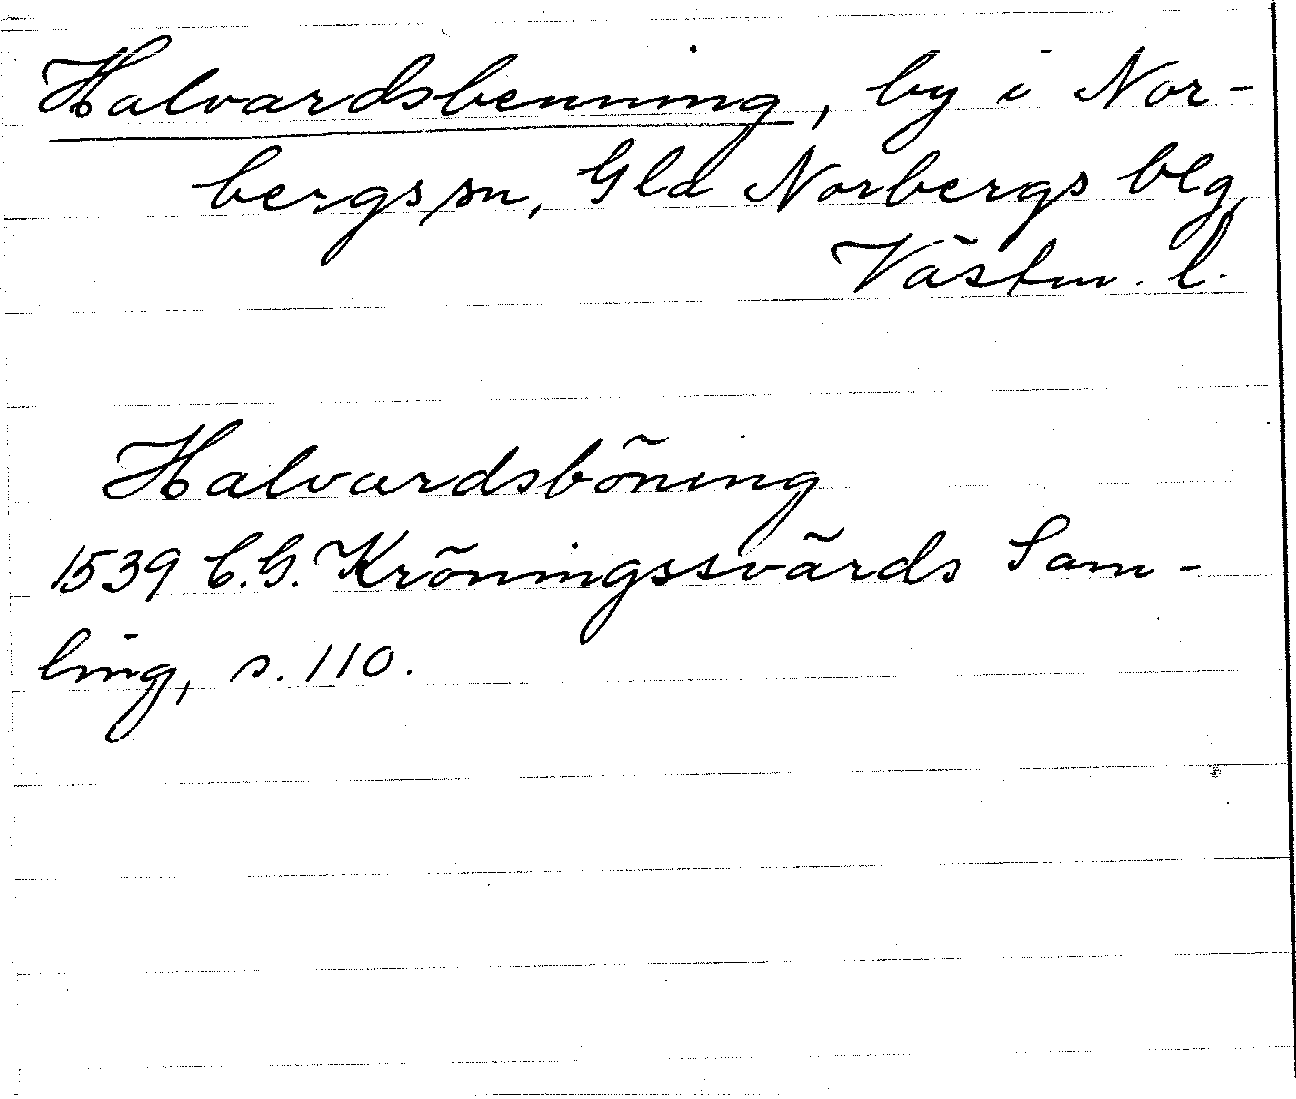 Halvardsbenning, by i Nor-
bergs sn, Gla Norbergs blg,
Västm. l.
Halvardsböning
1539 C.G. Kröningssvärds Sam-
ling, s. 110.